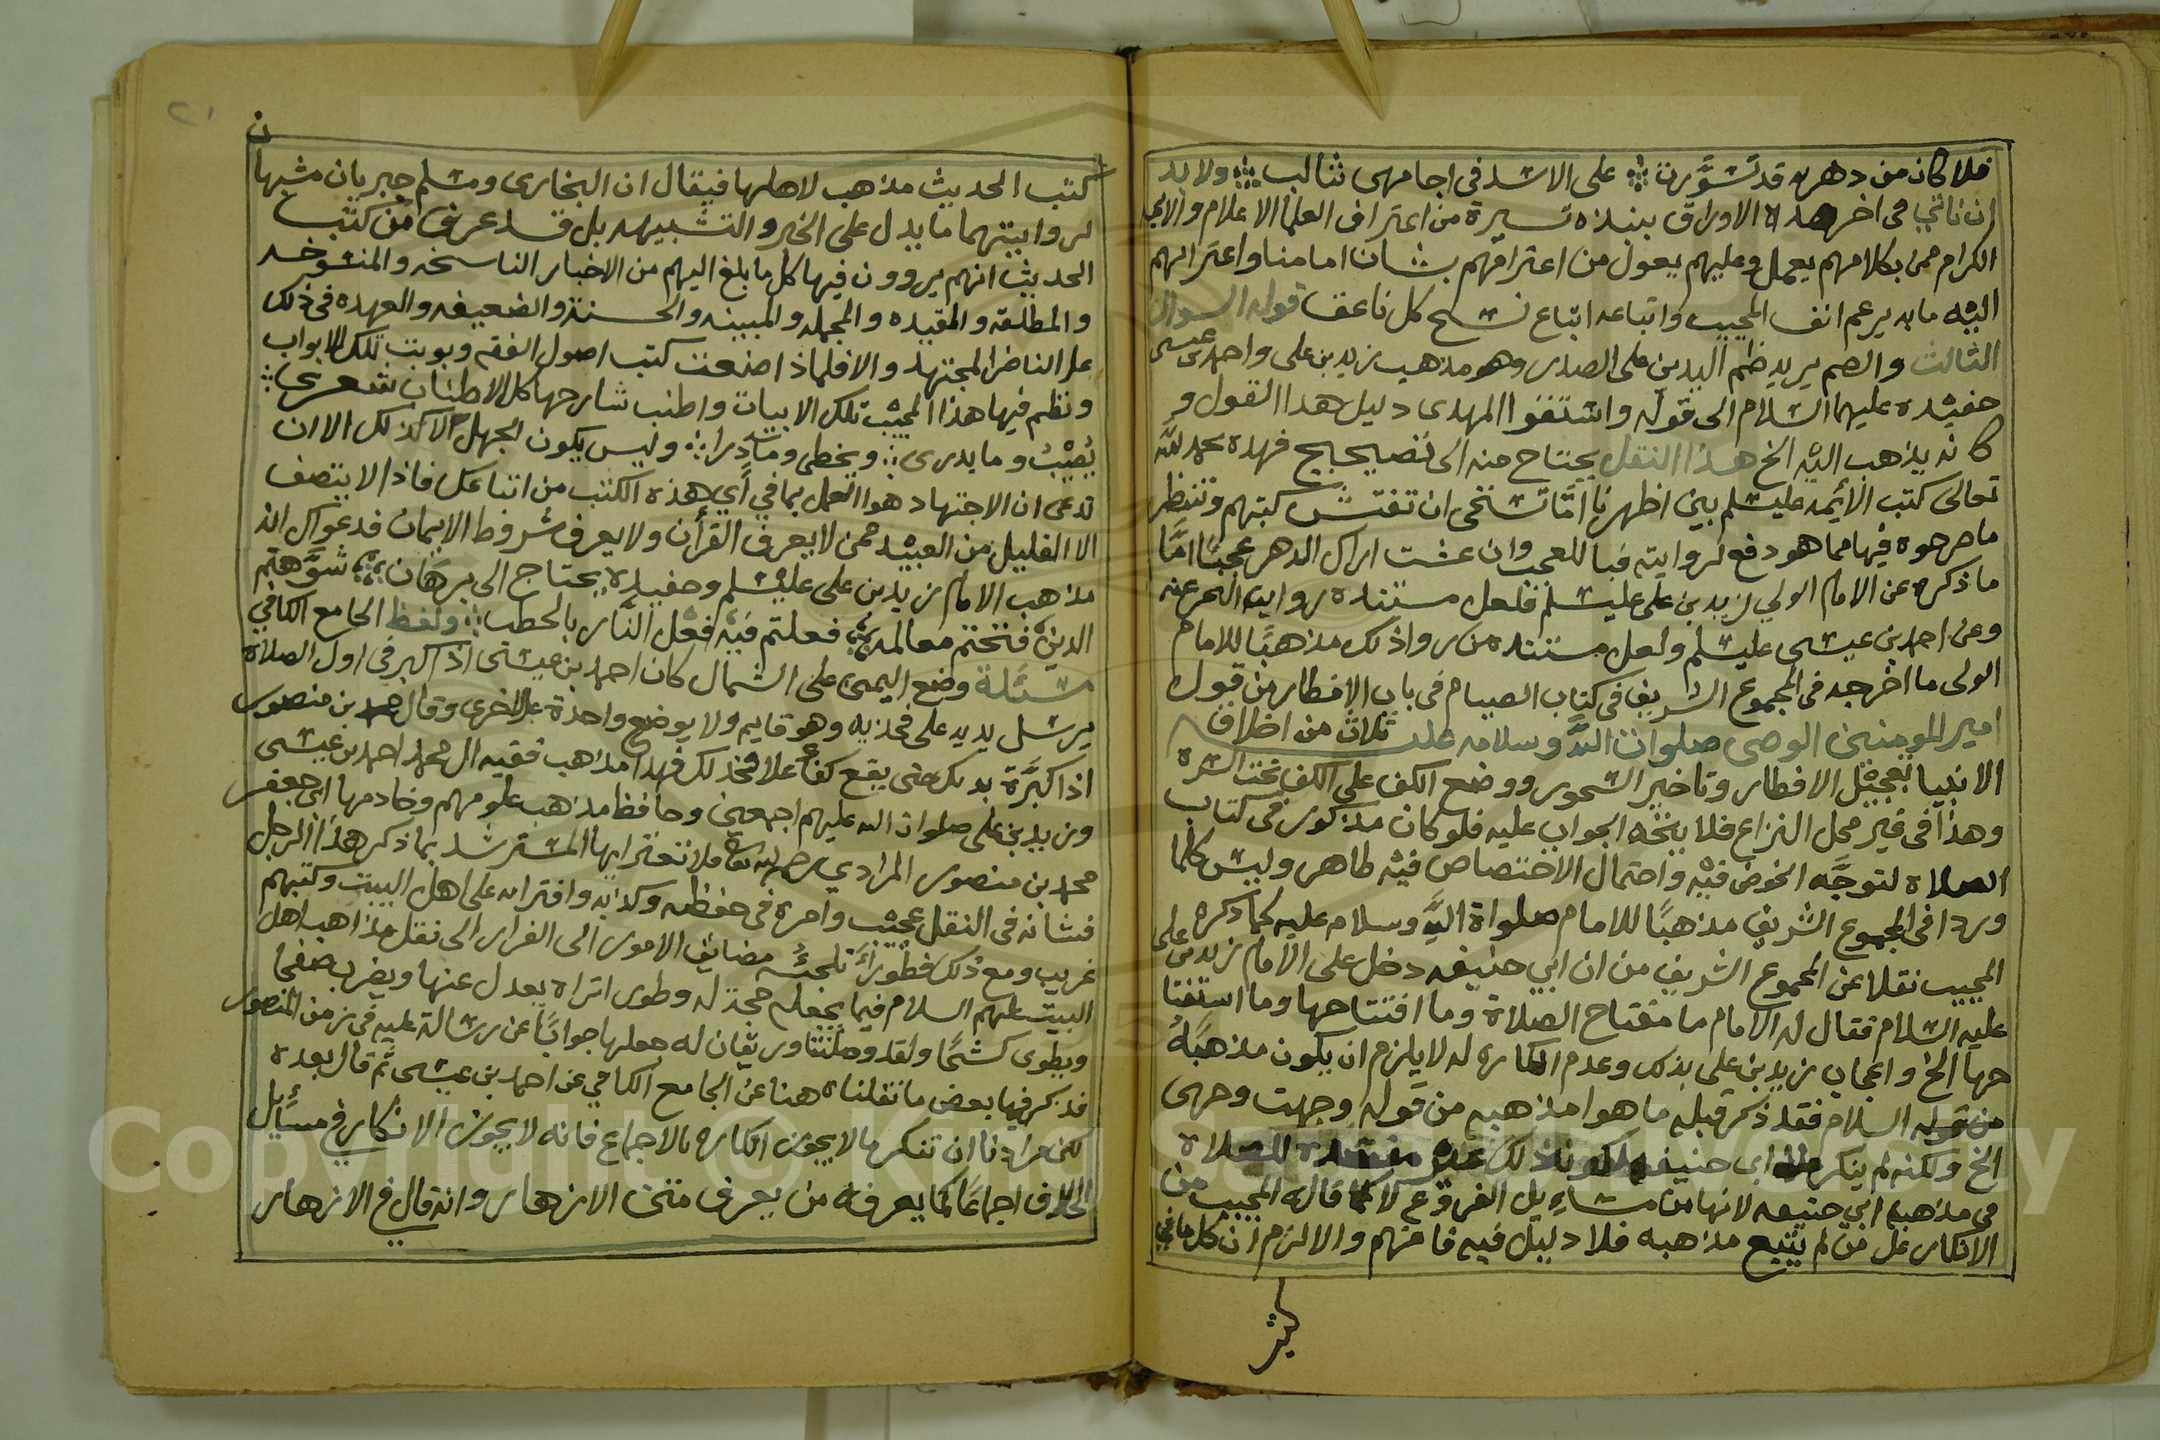 فلا كان من دهر به قد تسورت على الاسد في اجامهى ثعالب ولابد
ان ناتي في اخر هذه الاوراق بنبذه يسيرة من اعتراف العلما الاعلام والالي
الكرام ممن بكلامهم يعمل وعليهم يعول من اعترافهم بشان امامنا واعتزائهم
اليه ما به يرغم انف المجيب واتباعه اتباع كل ناعق قوله السوال
الثالث والضم يريد ضم اليدين على الصدر وهو مذهب زيد بن علي واحمد بن عيسى
حفيده عليهما السلام الى قوله واستقوا المهدى دليل هدا القول و
كانه يذهب اليه الخ هذا النقل يحتاج منه الى تصحيح فهذه بحمد الله
تعالى كتب الأيمه عليسلم بين اظهرنا اما تستحى ان تفتش كتبهم وتنظر
ما صرحوه فيها مما هو دفع لروايته فيا للعجب وان عشت اراك الدهر عجبًا امَّا
ما ذكره عن الامام الولي زيد بن علي عليسلم فلعل مستنده رواية البحر عنه
وعن احمد بن عيسى عليسلم ولعل مستنده من رواذلك مذهبًا للامام
الولى ما اخرجه في المجموع الشريف في كتاب الصيام في باب الافطار من قول
امير المومنين الوصى صلوات الله وسلامه عليه ثلاث من اخلاق
الانبيا تعجيل الافطار وتاخير السحور ووضع الكف على الكف تحت السرة
وهذا في غير محل النزاع فلا يتجه الجواب عليه فلو كان مذكور في كتاب
الصلاة لتوجَّه الخوض فيه واحتمال الاختصاص فيه ظاهر وليس كلما
ورد في المجموع الشريف مذهبًا للامام صلواة الله وسلام عليه كما ذكره
المجيب نقلا عن المجموع الشريف من ان ابي حنيفه دخل على الامام زيد بن علي
عليه السلام فقال له الامام ما مفتاح الصلاة وما افتتاحها وما استفتا
حها الخ واعجاب زيد بن علي بذلك وعدم انكاره له لا يلزم ان يكون مذهبًا له
من قوله السلام فقد ذكر قبله ما هوا مذهبه من قوله وجهت وجهى
الخ ولكنه لم ينكر على ابى حنيفه لكون ذلك عنده للصلاة
في مذهب ابي حنيفه لانها من مسايل الفروع لا كما قاله المجيب من
الانكار على من لم يتبع مذهبه فلا دليل فيه فافهم والا لزم ان كل ما في
كتب
٢١
كتب الحديث مذهب لاهلها فيقال ان البخارى ومسلم جبريان مشبهان
لروايتهما ما يدل على الخبر والتشبيه بل قد عرف من كتب
الحديث انهم يروون فيها كل ما بلغ اليهم من الاخبار الناسخه والمنسوخه
والمطلقه والمقيده والمجمله والمبينه والحسنة والضعيفه والعهده في ذلك
على الناظر المجتهد والا فلماذا صنعت كتب اصول الفقه وبوبت تلك الابواب
ونظم فيها هذا المجيب تلك الابيات واطنب شارحها كل الاطناب شعرى
يُصيبُ وما يدرى ويخطى وما درا وليس يكون الجهل الا كذلك الا ان
تدعى ان الاجتهاد هوا العمل بما في أي هذه الكتب من اتنا عكل فاذا لا يتصف
الا القليل من العبيد ممن لا يعرف القرأن ولا يعرف شروط الايمان فدعواك ان
مذهب الامام زيد بن على عليسلم وحفيده يحتاج الى برهان شوَّهتم
الدين فتحتم معالمه فعلتم فيه فعل النَّار بالحطب ولفظ الجامع الكافي
مسئلة وضع اليمنى على الشمال كان احمد بن عيسى اذا كبر في اول الصلاة
يرسل يديه على فخذيه وهو قايم ولا يوضع واحدة على الاخرى وقال محمد بن منصور
اذا كبَّرة يديك حتى يقع كفا علا فخذلك فهذا مذهب فقيه ال محمد احمد بن عيسى
وزيد بن على صلوات الله عليهم اجمعين وحافظ مذهب علومهم وخادمها ابي جعفر
محمد بن منصور المرادي رحمه الله تعا فلا تغتر ايها المسترشد بما ذكر هذا الرجل
فشانه في النقل عجيب وامره في حفظه وكذابه وافترائه على اهل البيت وكتبهم
غريب ومع ذلك فطورًا تلجئه مضايق الامور الى الفرار الى نقل مذاهب اهل
البيت عليهم السلام فيما يجعله حجة له وطورا تراه يعدل عنها ويضرب صفحا
ويطوى كشحًا ولقد وصلتنا ورقتان له جعلها جوابًا عن رسالة عليه في زمن المنصور
فذكر فيها بعض ما نقلناه هنا عن الجامع الكافي عن احمد بن عيسى ثم قال بعده
لكن مرادنا ان تنكر ما لا يجوز انكاره بالاجماع فانه لا يجوز الانكار في مسايل
الخلاف اجماعًا كما يعرفه من يعرف متن الازهار وانه قال في الازهار